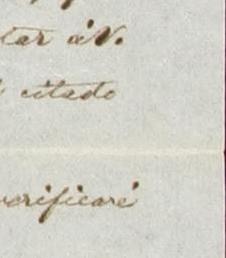 tar á V.
citado
verificaré